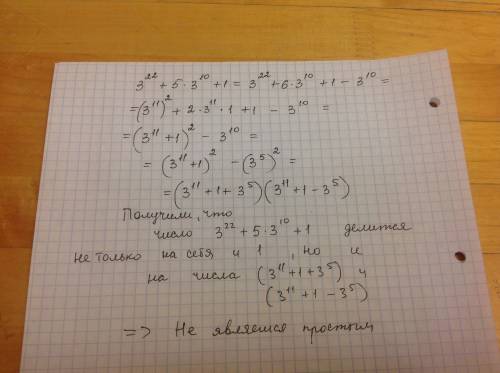 3²² + 5 · 3¹⁰ + 1 = 3²² + 6 · 3¹⁰ + 1 - 3¹⁰ =
= (3¹¹)² + 2 · 3¹¹ · 1 + 1 - 3¹⁰ =
= (3¹¹ + 1)² - 3¹⁰ =
= (3¹¹ + 1)² - (3⁵)² =
= (3¹¹ + 1 + 3⁵) (3¹¹ + 1 - 3⁵)
Получили, что
число 3²² + 5 · 3¹⁰ + 1 делится
не только на себя и 1, но и
на числа (3¹¹ + 1 + 3⁵) и
(3¹¹ + 1 - 3⁵)
=> Не является простым